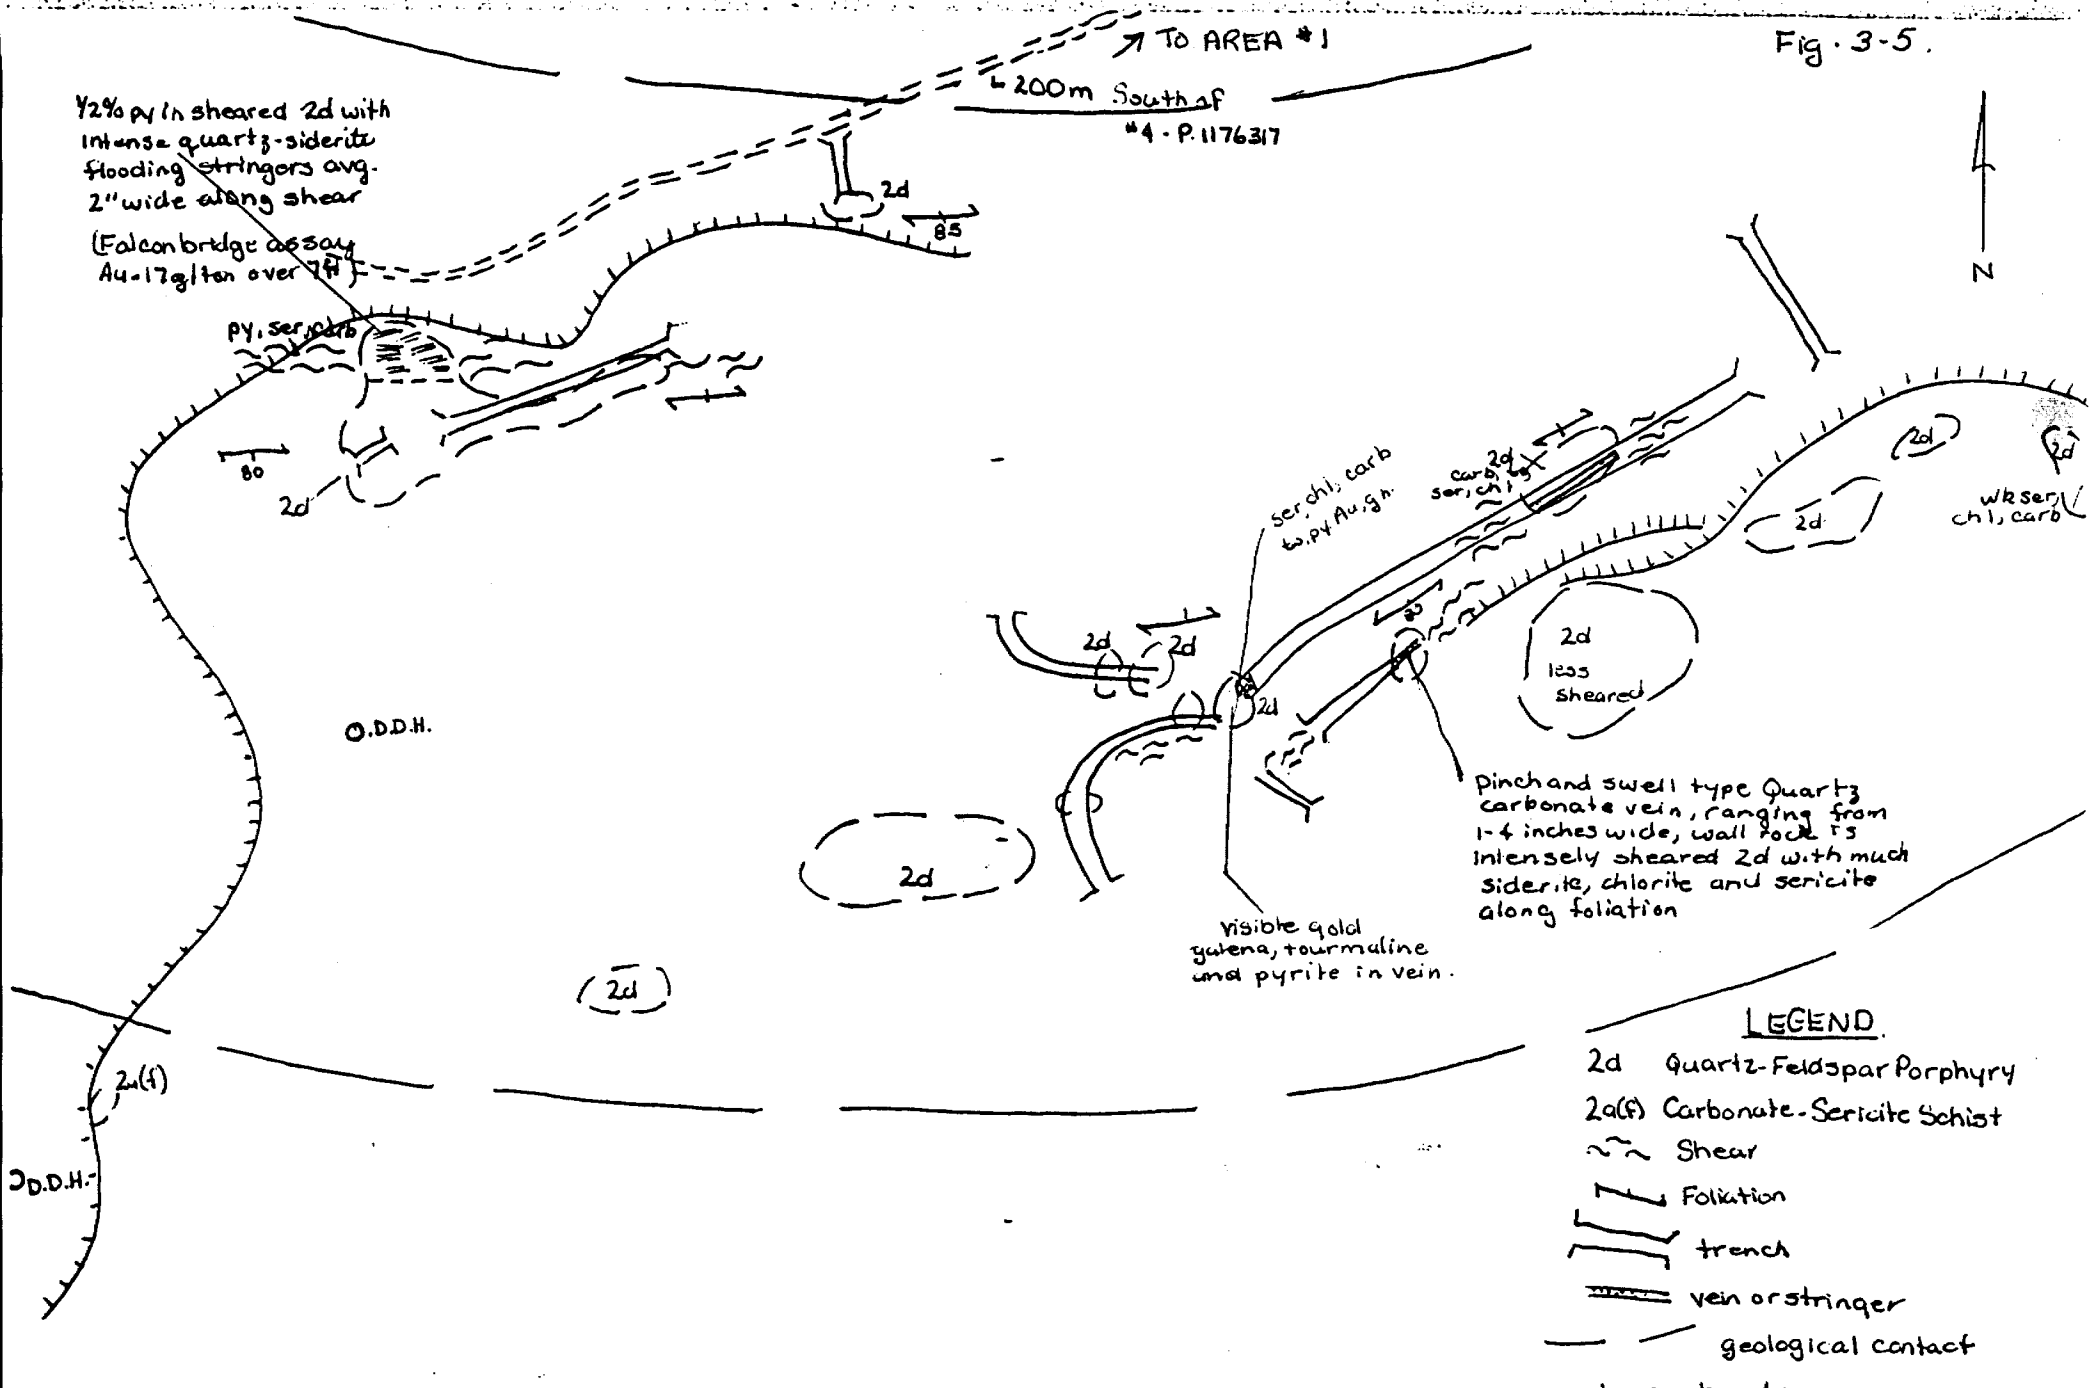 Fig. 3-5.
↗ TO AREA #1
200m South of
#4 - P. 1176317
1/2% py in sheared 2d with
intense quartz-siderite
flooding stringers avg.
2" wide along shear
(Falconbridge assay
Au-17g/ton over 7ft)
py, ser, carb
2d
85
80
2d
N
ser, chl, carb
to, py, Au, gn.
2d
carb,
ser, chl
2d
2d
wk ser,
chl, carb
2d
2d
2d
2d
2d
less
sheared
O.D.D.H.
2d
2d
Pinch and swell type Quartz
carbonate vein, ranging from
1-4 inches wide, wall rock is
intensely sheared 2d with much
siderite, chlorite and sericite
along foliation
visible gold
galena, tourmaline
and pyrite in vein.
2a(f)
D.D.H.
LEGEND
2d Quartz-Feldspar Porphyry
2a(f) Carbonate-Sericite Schist
Shear
Foliation
trench
vein or stringer
geological contact